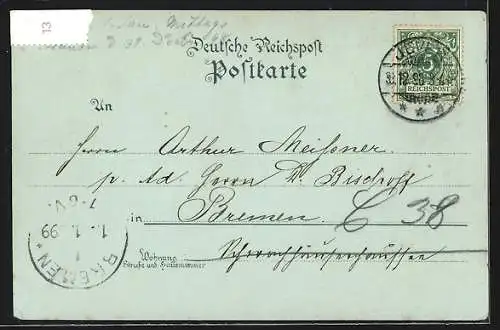 13
Mittags
Deutsche Reichspost
Postkarte
JEVER
31.12.98.
5
REICHSPOST
An
Herrn Arthur Meissner
p. Ad. Herrn D. Bischoff
in Bremen C 38
Wohnung
Strasse und Hausnummer
BREMEN
7-8 V.
1. 1. 99